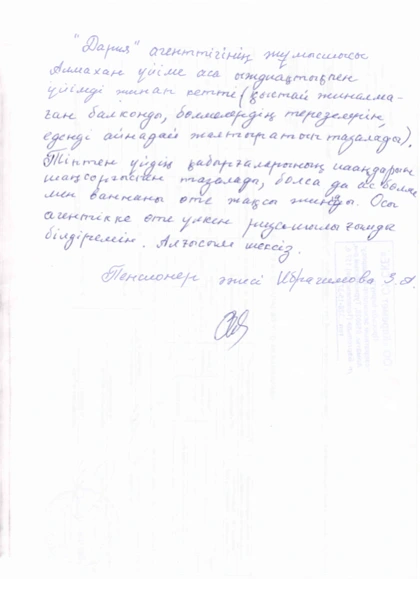 "Дария" агенттігінің жұмысшысы
Алмахан үйіме аса ыждағаттықпен
үйімді жинап кетті (қыстай жиналма-
ған балконды, бөлмелердің терезелерін,
еденді айнадай жалтыратып тазалады).
Тіптен үйдің қабырғаларының шаңдарын
шаңсорғышпен тазалады, болса да ас бөлме
мен ваннаны өте жақсы жинады. Осы
агентікке өте үлкен ризашылығымды
білдіремін. Алғысым шексіз.
Пенсионер әжесі Ибрагимова З. А.